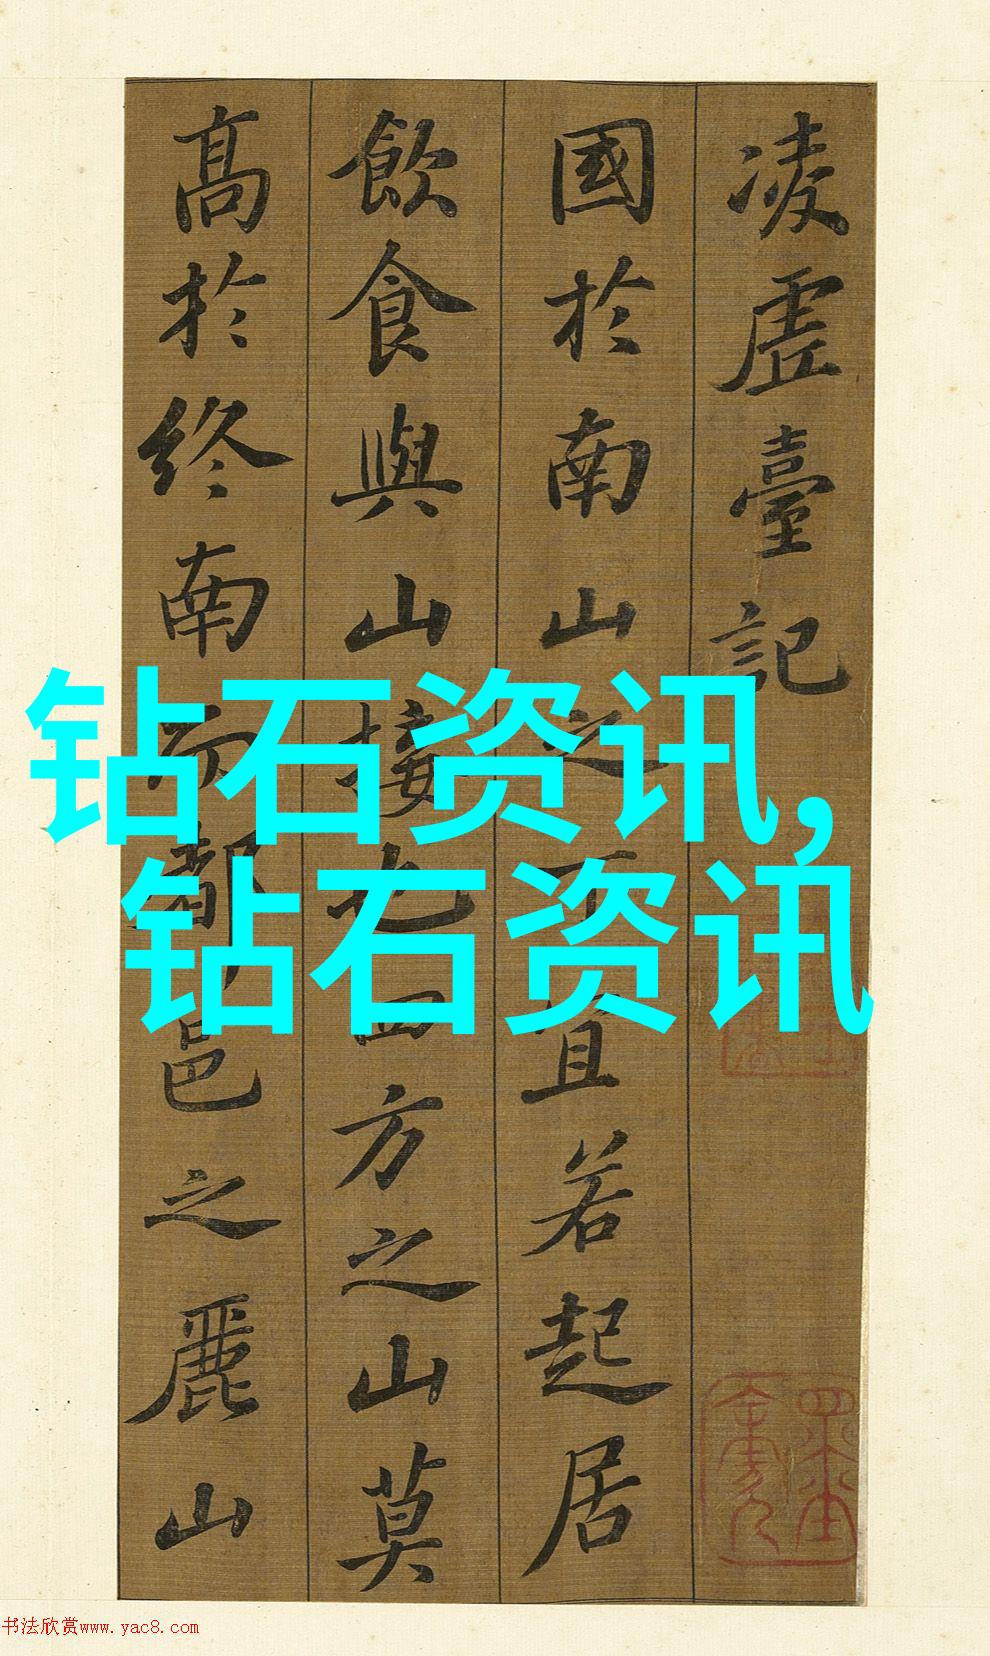 凌虛臺記
國於南山之下宜若起居
飲食與山接也四方之山莫
高於終南而都邑之麗山
钻石资讯,
钻石资讯
书法欣赏www.yac8.com